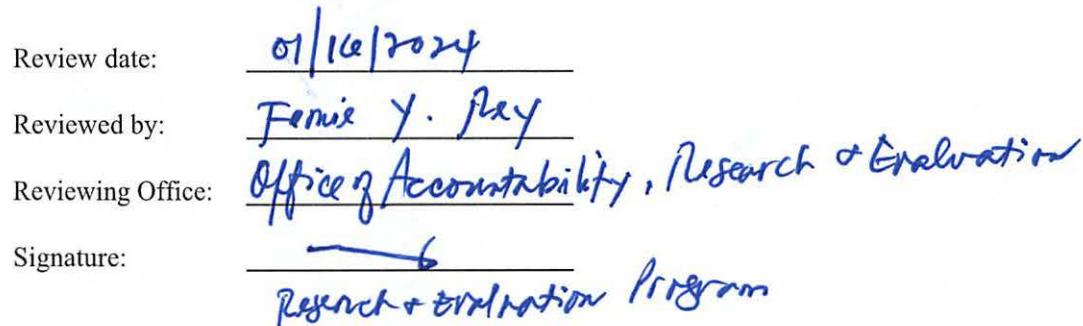 Review date: 01/16/2024
Reviewed by: Femie Y. Rey
Reviewing Office: Office of Accountability, Research & Evaluation
Signature:
Research & Evaluation Program